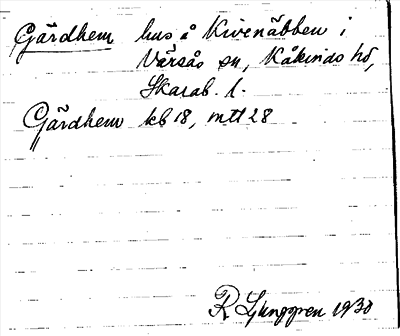 Gärdhem hus å Kivenäbben i
Värsås sn, Kåkinds hd,
Skarab. l.
Gärdhem kb 18, mtt 28
R Ljunggren 1930